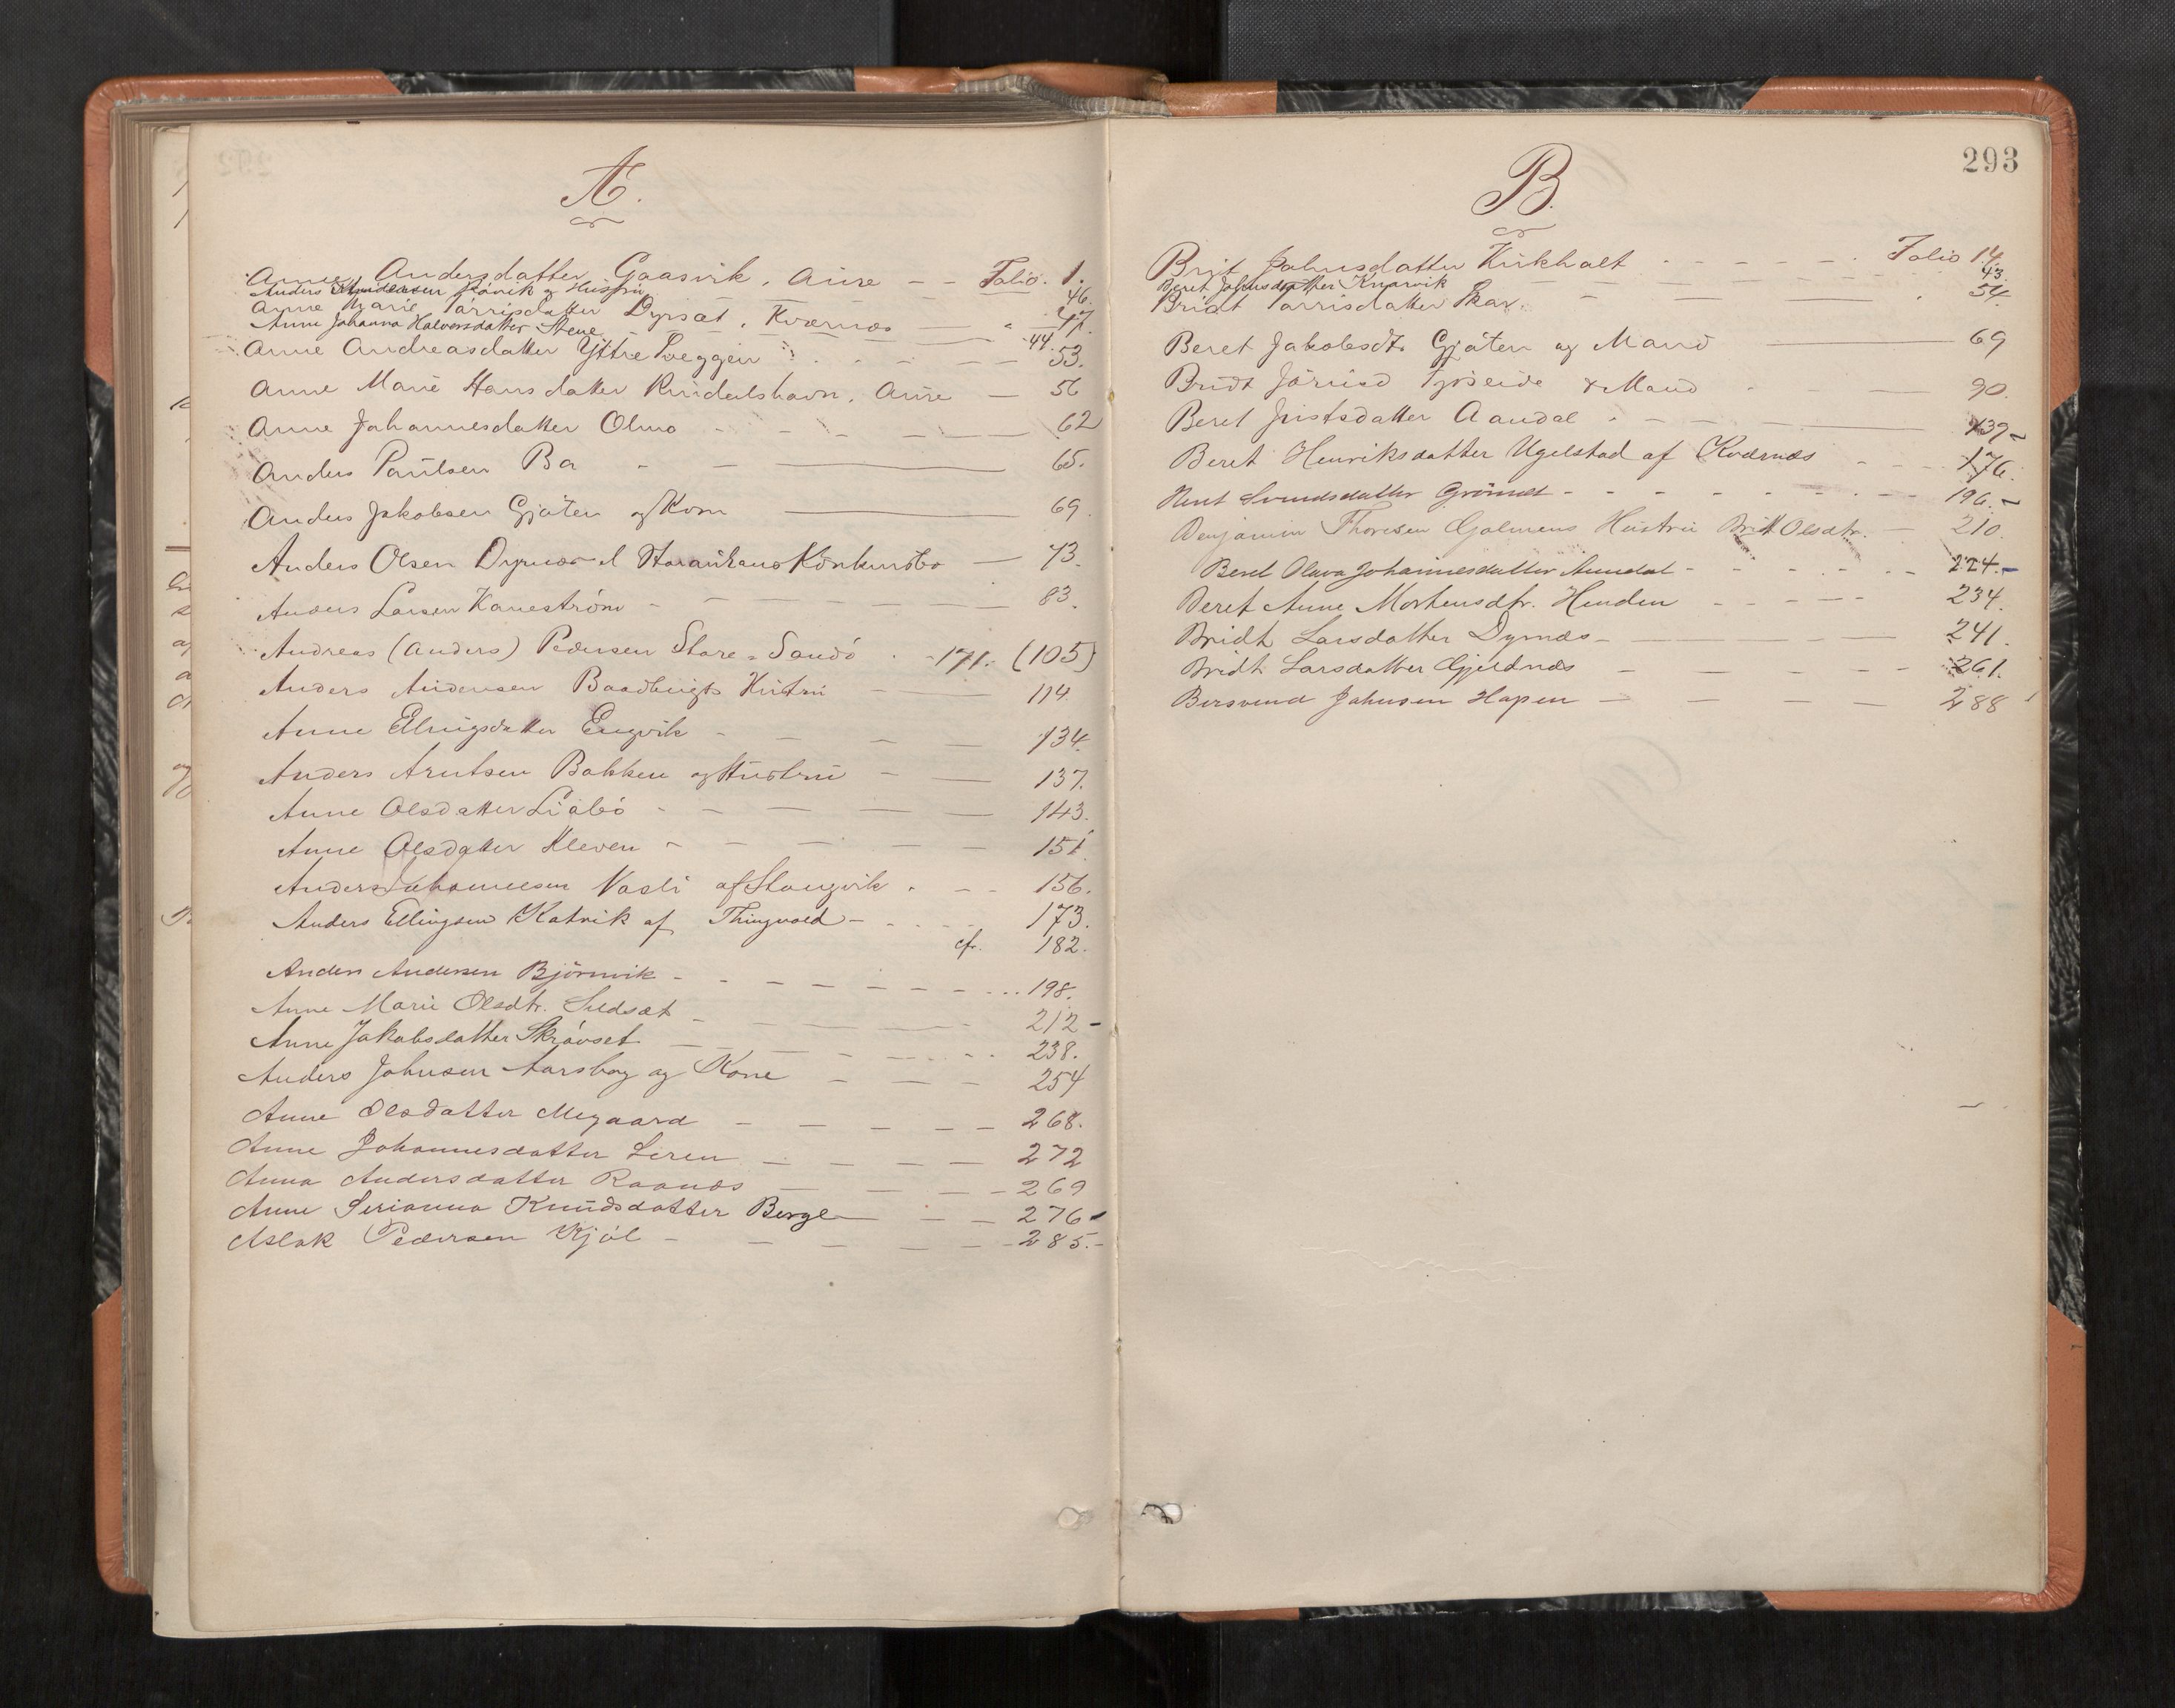 A.
Anne Andersdatter Gaasvik, Aure - - Folio. 1.
Anders Knudsen Stövik og Hustru 46.
Anne Marie Törrisdatter Dyrsæt, Kværnæs - " 47.
Anne Johanna Halvorsdatter Stene 44.
Anne Andreasdatter Yttre Sveggen 53.
Anne Marie Hansdatter Rindalshavn, Aure - 56
Anne Johannesdatter Olmo 62
Anders Paulsen Bø 65.
Anders Jakobsen Gjöten og Kone 69.
Anders Olsen Dyrnæs 73.
Anders Larsen Kanestrøm 83.
Andreas (Anders) Pedersen Store-Sandö - 171. (105)
Anders Andersen Baadbugts Hustru 114.
Anne Ellingsdatter Engvik 134.
Anders Arntsen Bakken og Hustru 137.
Anne Olsdatter Liabö 143.
Anne Olsdatter Kleven 151.
Anders Johannesen Vasli af Stangvik - - 156.
Anders Ellingsen Katvik af Thingvold - 173.
cfr. 182.
Anders Andersen Björnvik 198.
Anne Marie Olsdtr. Sildsæt 212 -
Anne Jakobsdatter Skrövset 238.
Anders Johnsen Aarsbog og Kone 254
Anne Olsdatter Megaard 268.
Anne Johannesdatter Leren 272
Anna Andersdatter Raanæs 269
Anne Serianna Knudsdatter Berge 276 -
Aslak Pedersen Kjöl 285. -
293
B.
Brit Jahnsdatter Kirkhalt Folio 14.
Beret Johnsdatter Knarvik 43.
Bridt Tørrisdatter Skar 54.
Beret Jakobsdtr Gjöten og Mand 69
Bridt og Mand 90.
Beret Aandal 139 -
Beret Henriksdatter Ugelstad af Kværnæs 176.
Svendsdatter Grönnes 196. -
Benjamin Thoresen Gjalmens Hustru Brit Olsdtr. 210.
Beret Olava Johannesdatter Aandal 224. -
Beret Anne Mortensdtr. Henden 234.
Bridt Larsdatter Dyrnæs 241.
Bridt Larsdatter Gjeldnæs 261.
Bersvend Jahnsen Hapen 288